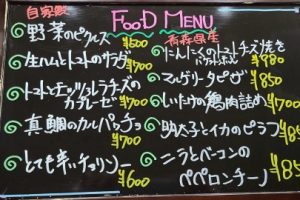 FOOD MENU
自家製
野菜のピクルス ¥500
生ハムとトマトのサラダ ¥700
トマトとモッツァレラチーズの
カプレーゼ ¥700
真鯛のカルパッチョ ¥700
とても辛いチョリソー ¥600
青森県産
にんにくのトマトチーズ焼き
¥980
マルゲリータピザ ¥850
しいたけの鶏肉詰め ¥700
明太子とイカのピラフ ¥85
ニラとベーコンの
ペペロンチーノ ¥85